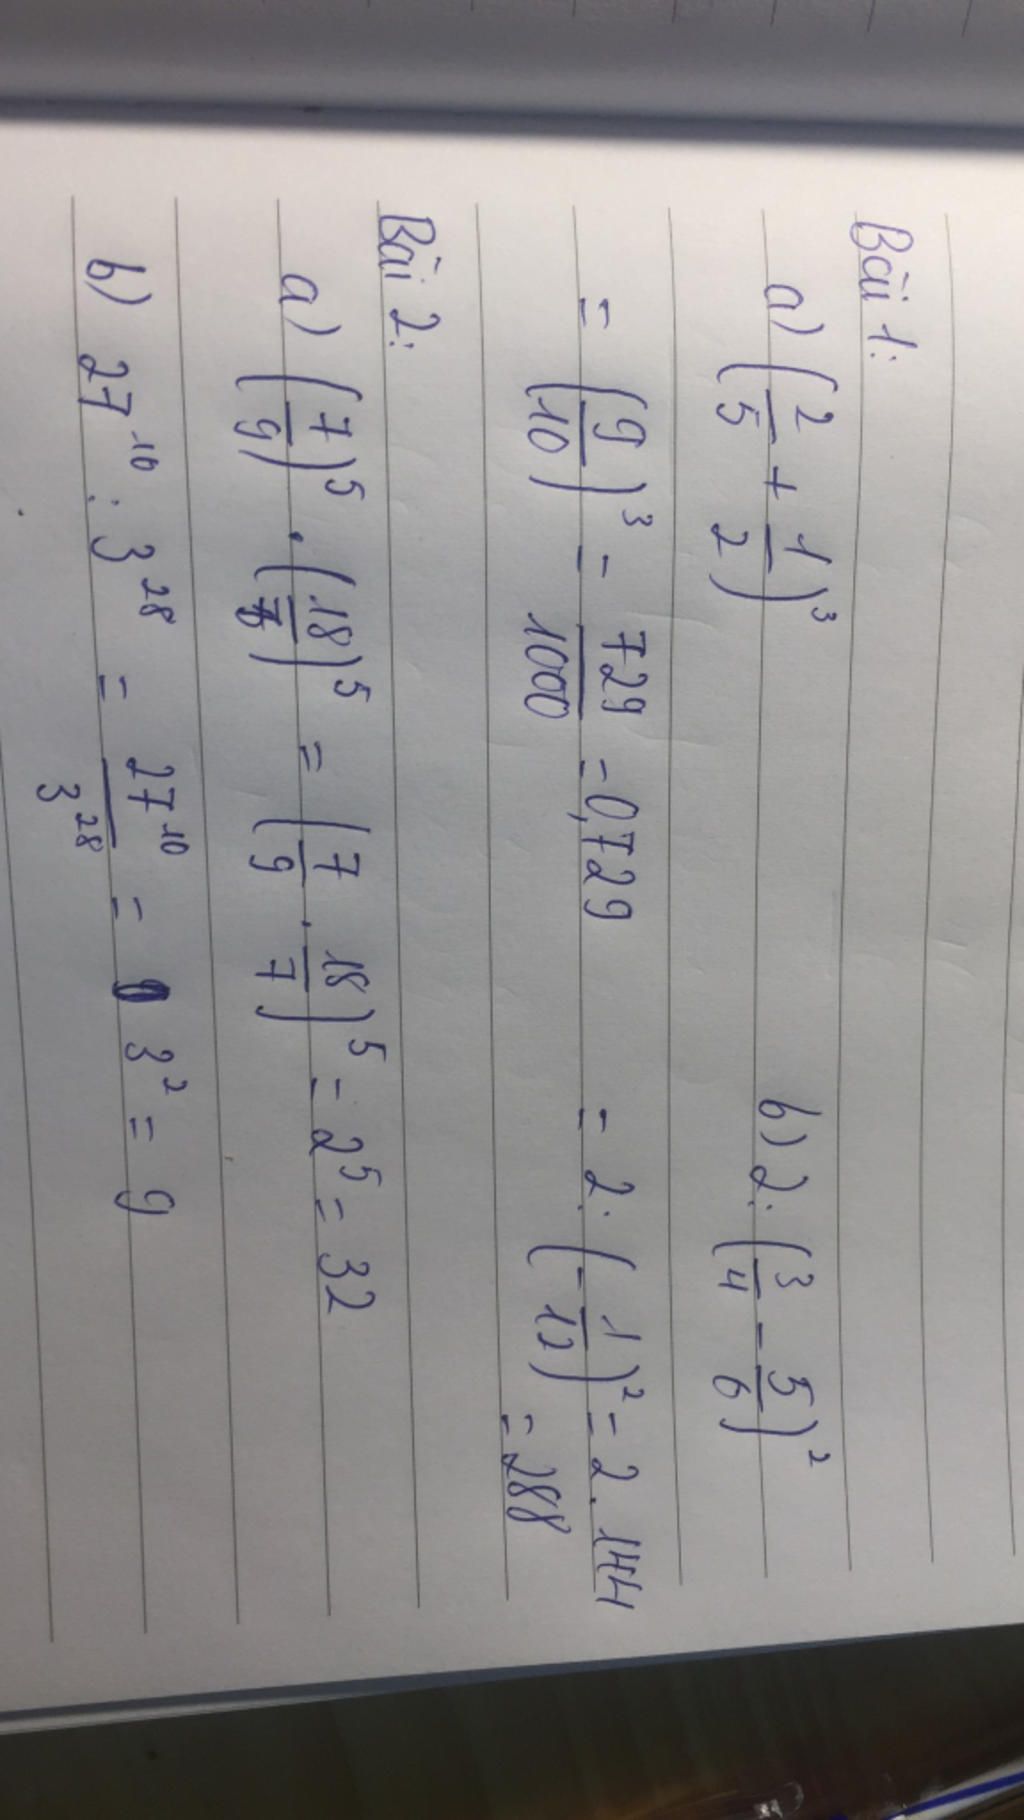 Bài 1:
a) (2/5 + 1/2)³ b) 2 : (3/4 - 5/6)²
= (9/10)³ = 729/1000 = 0,729 = 2 : (-1/12)² = 2 . 144
= 288
Bài 2:
a) (7/9)⁵ . (18/7)⁵ = (7/9 . 18/7)⁵ = 2⁵ = 32
b) 27¹⁰ : 3²⁸ = 27¹⁰/3²⁸ = 3² = 9